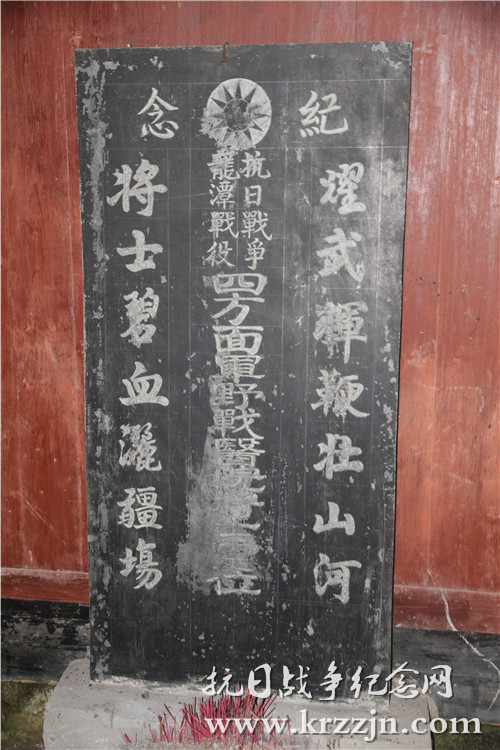 紀念
燿武輝鞭壮山河
抗日戰爭
龍潭戰役
四方面軍野戰醫院
位
將士碧血灑疆塲
抗日战争纪念网
www.krzzjn.com